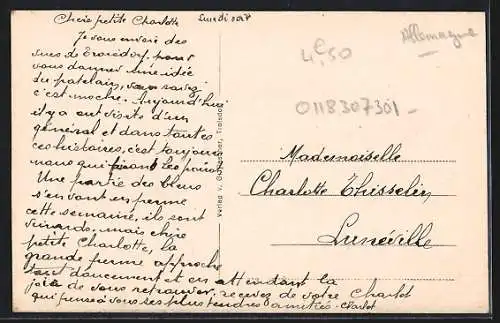 Chère petite Charlotte
Lundi soir
Je vous envoie des
vues de Troisdorf pour
vous donner une idée
du patelain, vous savez
c'est moche. Aujourd'hui
il y a eut visite d'un
général et dans toutes
ces histoires, c'est toujours
nous qui les
Une partie des bleus
s'en vont en perme
cette semaine, ils sont
veinards, mais chère
petite Charlotte, la
grande perme approche
tout doucement et en attendant la
joie de vous retrouver, recevez de votre Charlot
qui pense à vous ses plus tendres amitiés - Charlot
Verlag v. Troisdorf
Allemagne
4€50
0118307301 -
Mademoiselle
Charlotte
Luneville